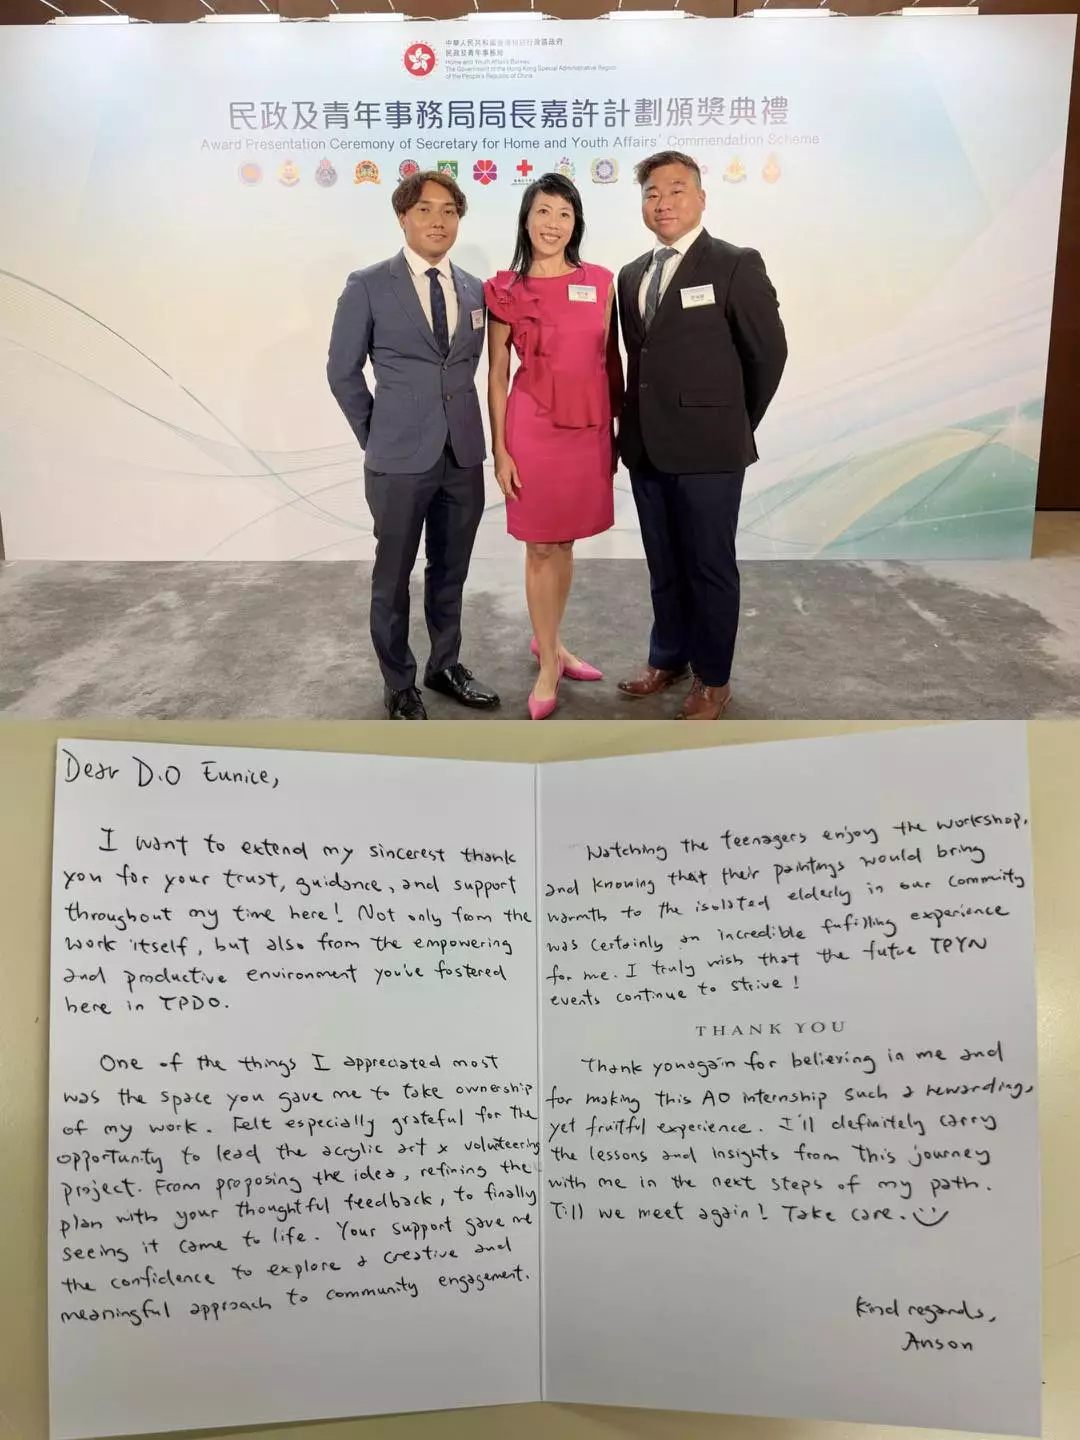 中華人民共和國香港特別行政區政府
民政及青年事務局
Home and Youth Affairs Bureau
The Government of the Hong Kong Special Administrative Region
of the People's Republic of China
民政及青年事務局局長嘉許計劃頒獎典禮
Award Presentation Ceremony of Secretary for Home and Youth Affairs' Commendation Scheme
Dear D.O Eunice,
I want to extend my sincerest thank
you for your trust, guidance, and support
throughout my time here! Not only from the
work itself, but also from the empowering
and productive environment you've fostered
here in TPDO.
One of the things I appreciated most
was the space you gave me to take ownership
of my work. Felt especially grateful for the
opportunity to lead the acrylic art x volunteering
project. From proposing the idea, refining the
plan with your thoughtful feedback, to finally
seeing it came to life. Your support gave me
the confidence to explore a creative and
meaningful approach to community engagement.
Watching the teenagers enjoy the workshop,
and knowing that their paintings would bring
warmth to the isolated elderly in our community
was certainly an incredible fulfilling experience
for me. I truly wish that the future TPYN
events continue to strive!
THANK YOU
Thank you again for believing in me and
for making this AO internship such a rewarding,
yet fruitful experience. I'll definitely carry
the lessons and insights from this journey
with me in the next steps of my path.
Till we meet again! Take care.
Kind regards,
Anson